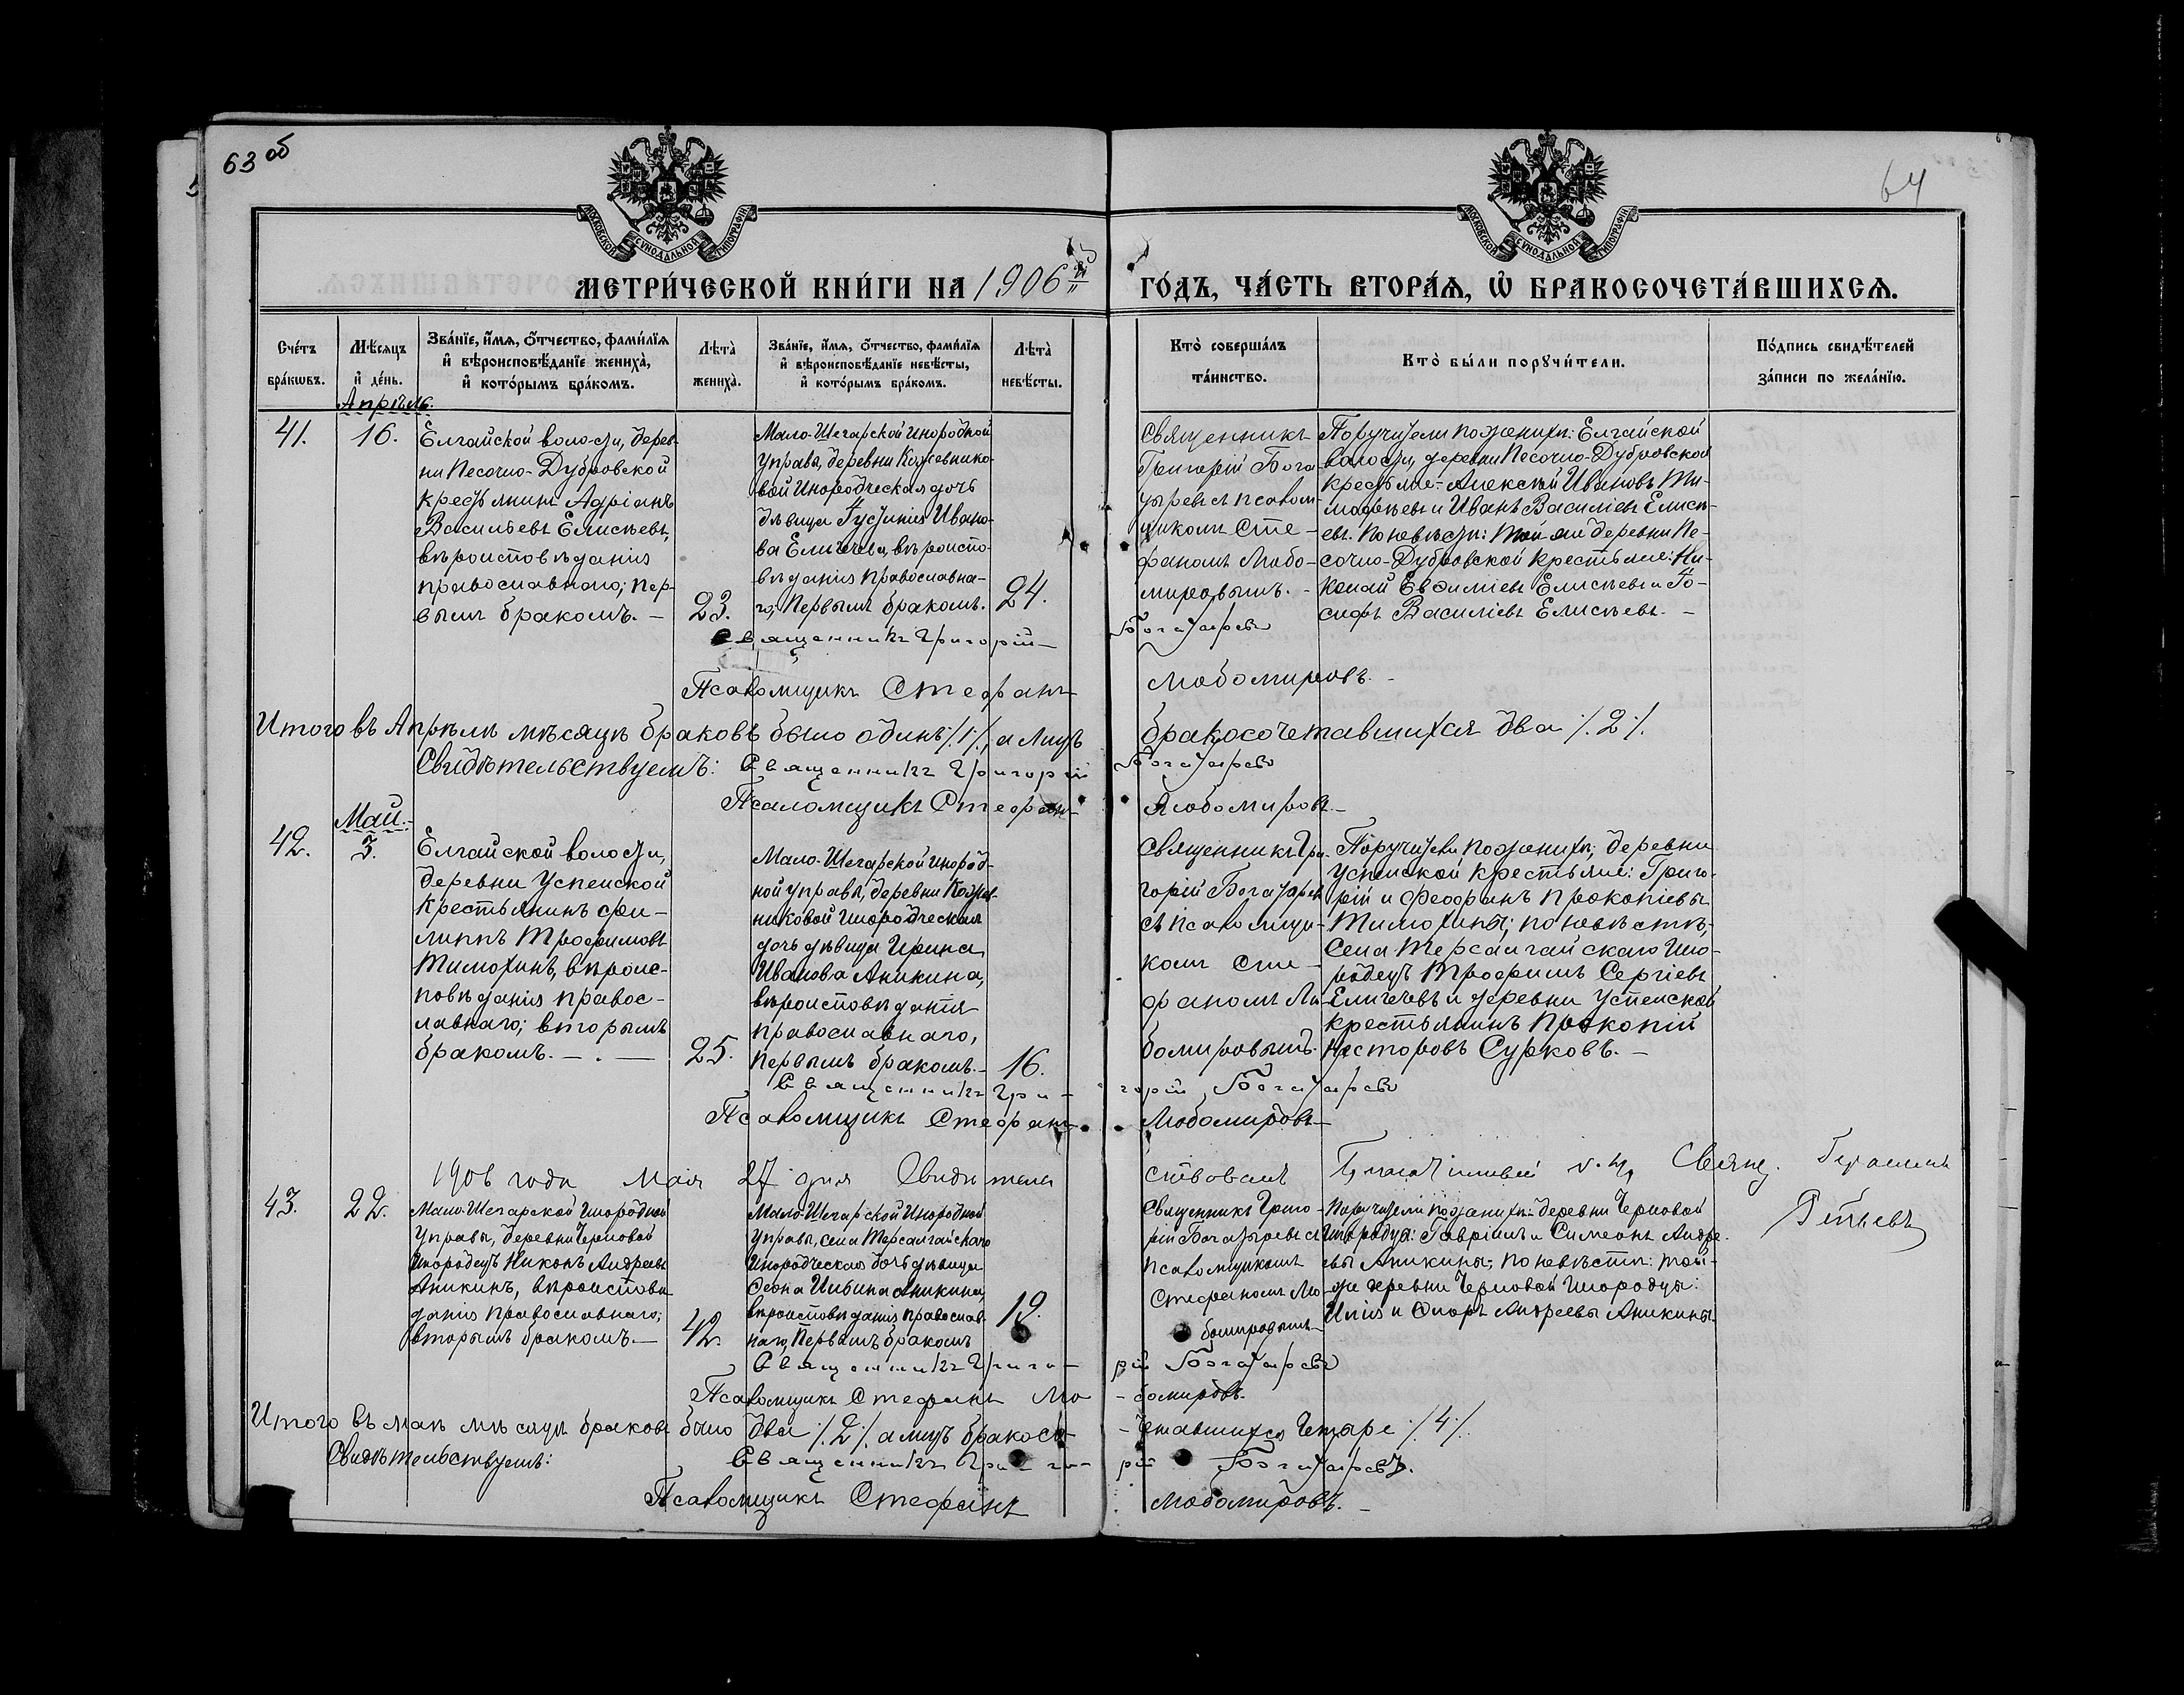 63 об
64
МОСКОВСКОЙ СУНОДАЛЬНОЙ ТИПОГРАФІИ
МОСКОВСКОЙ СУНОДАЛЬНОЙ ТИПОГРАФІИ
МЕТРИ́ЧЕСКОЙ КНИ́ГИ НА 1906й
ГО́ДЪ, ЧА́СТЬ ВТОРА́Я, Ѡ҆ БРАКОСОЧЕТА́ВШИХСЯ.
Сче́тъ
бра́кѡвъ.
Мѣ́сяцъ
и҆ де́нь.
Зва́нїе, и҆́мя, ѻ҆́тчество, фами́лїя
и҆ вѣроисповѣ́данїе жениха̀,
и҆ кото́рымъ бра́комъ.
Лѣта̀
жениха̀.
Зва́нїе, и҆́мя, ѻ҆́тчество, фами́лїя
и҆ вѣроисповѣ́данїе невѣ́сты,
и҆ кото́рымъ бра́комъ.
Лѣта̀
невѣ́сты.
Кто̀ соверша́лъ
та́инство.
Кто̀ бы́ли порꙋчи́тели.
По́дпись свидѣ́телей
за́писи по жела́нїю.
Апрѣль.
41.
16.
Елгайской волости, дерев-
ни Песочно-Дубровской
крестьянинъ Адріанъ
Васильевъ Елисѣевъ,
вѣроисповѣданія
православнаго; пер-
вымъ бракомъ. —
23.
Мало-Шегарской инородной
управы, деревни Кожевнико-
вой инородческая дочь
дѣвица Іустинія Ивано-
ва Елигечева, вѣроиспо-
вѣданія православна-
го, первымъ бракомъ.
24.
Священникъ
Григорій Бога-
тыревъ съ псалом-
щикомъ Сте-
фаномъ Любо-
мировымъ. -
Поручители по женихѣ: Елгайской
волости, деревни Песочно-Дубровской
крестьяне: Алексѣй Ивановъ Ти-
мофеевъ и Иванъ Василіевъ Елисѣ-
евъ. По невѣстѣ: той же деревни Пе-
сочно-Дубровской крестьяне: Ни-
колай Евфиміевъ Елисѣевъ и Іо-
сифъ Василіевъ Елисѣевъ. —
Священникъ Григорій Богатыревъ
Псаломщикъ Стефанъ Любомировъ. -
Итого въ Апрѣлѣ мѣсяцѣ браковъ было одинъ /.1/., а лицъ бракосочетавшихся два /.2/.
Свидѣтельствуемъ: Священникъ Григорій Богатыревъ
Псаломщикъ Стефанъ Любомировъ —
Май.
42.
3.
Елгайской волости,
деревни Успенской
крестьянинъ Фи-
липпъ Трофимовъ
Тимохинъ, вѣроис-
повѣданія правос-
лавнаго; вторымъ
бракомъ. — . —
25.
Мало-Шегарской инород-
ной управы, деревни Кожев-
никовой инородческая
дочь дѣвица Ирина
Иванова Аникина,
вѣроисповѣданія
православнаго,
первымъ бракомъ. -
16.
Священникъ Гри-
горій Богатыревъ
съ псаломщи-
комъ Сте-
фаномъ Лю-
бомировымъ.
Поручители по женихѣ; деревни
Успенской крестьяне: Григо-
рій и Феофанъ Прокопіевы
Тимохины; по невѣстѣ,
села Терсалгайскаго ино-
родецъ Трофимъ Сергіевъ
Елигечевъ и деревни Успенской
крестьянинъ Прокопій
Несторовъ Сурковъ. —
Священникъ Григорій Богатыревъ
Псаломщикъ Стефанъ Любомировъ
1906 года Мая 27 дня Свидѣтель ствовалъ Свящ.
43.
22.
Мало-Шегарской инородной
управы, деревни Черновой
инородецъ Никонъ Андреевъ
Аникинъ, вѣроисповѣ-
данія православнаго;
вторымъ бракомъ. —
42.
Мало-Шегарской инородной
управы, села Терсалгайскаго
инородческая дочь дѣвица
Ильина Аникина,
вѣроисповѣданія православ-
наго, первымъ бракомъ
19.
Священникъ Григо-
рій Богатыревъ съ
псаломщикомъ
Стефаномъ Лю-
бомировымъ
Поручители по женихѣ: деревни Черновой
инородцы: Гавріилъ и Симеонъ Андре-
евы Аникины; по невѣстѣ: той-
же деревни Черновой инородцы:
Илія и Андреевы Аникины.
Священникъ Григорій Богатыревъ
Псаломщикъ Стефанъ Любомировъ.
Итого въ маѣ мѣсяцѣ браковъ было два /.2/. а лицъ бракосо-четавшихся четыре /.4/.
Свидѣтельствуемъ: Священникъ Григорій Богатыревъ.
Псаломщикъ Стефанъ Любомировъ. —